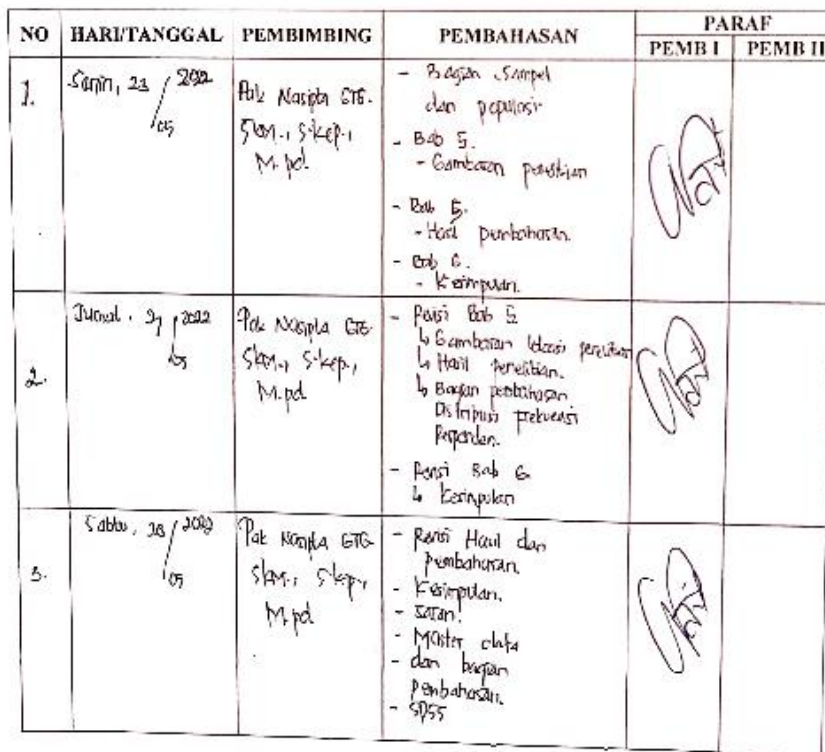 NO HARI/TANGGAL PEMBIMBING PEMBAHASAN PARAF
PEMB I PEMB II
1. Senin, 23 / 2022
/05
Pak Nasipta GTG.
Skm., S.kep.,
M.pd.
- Bagian Sampel
dan populasi
- Bab 5.
- Gambaran penelitian
- Bab 5.
- Hasil pembahasan.
- Bab 6.
- Kesimpulan.
2. Jumat, 27 / 2022
/05
Pak Nasipta GTG.
Skm., S.kep.,
M.pd
- Revisi Bab 5
↳ Gambaran lokasi penelitian
↳ Hasil penelitian.
↳ Bagian pembahasan
Distribusi frekuensi
Responden.
- Revisi Bab 6
↳ Kesimpulan
3. Sabtu, 28 / 2022
/05
Pak Nasipta GTG
Skm., S.kep.,
M.pd
- Revisi Hasil dan
pembahasan.
- Kesimpulan.
- Saran.
- Master data
- dan bagian
pembahasan.
- SPSS